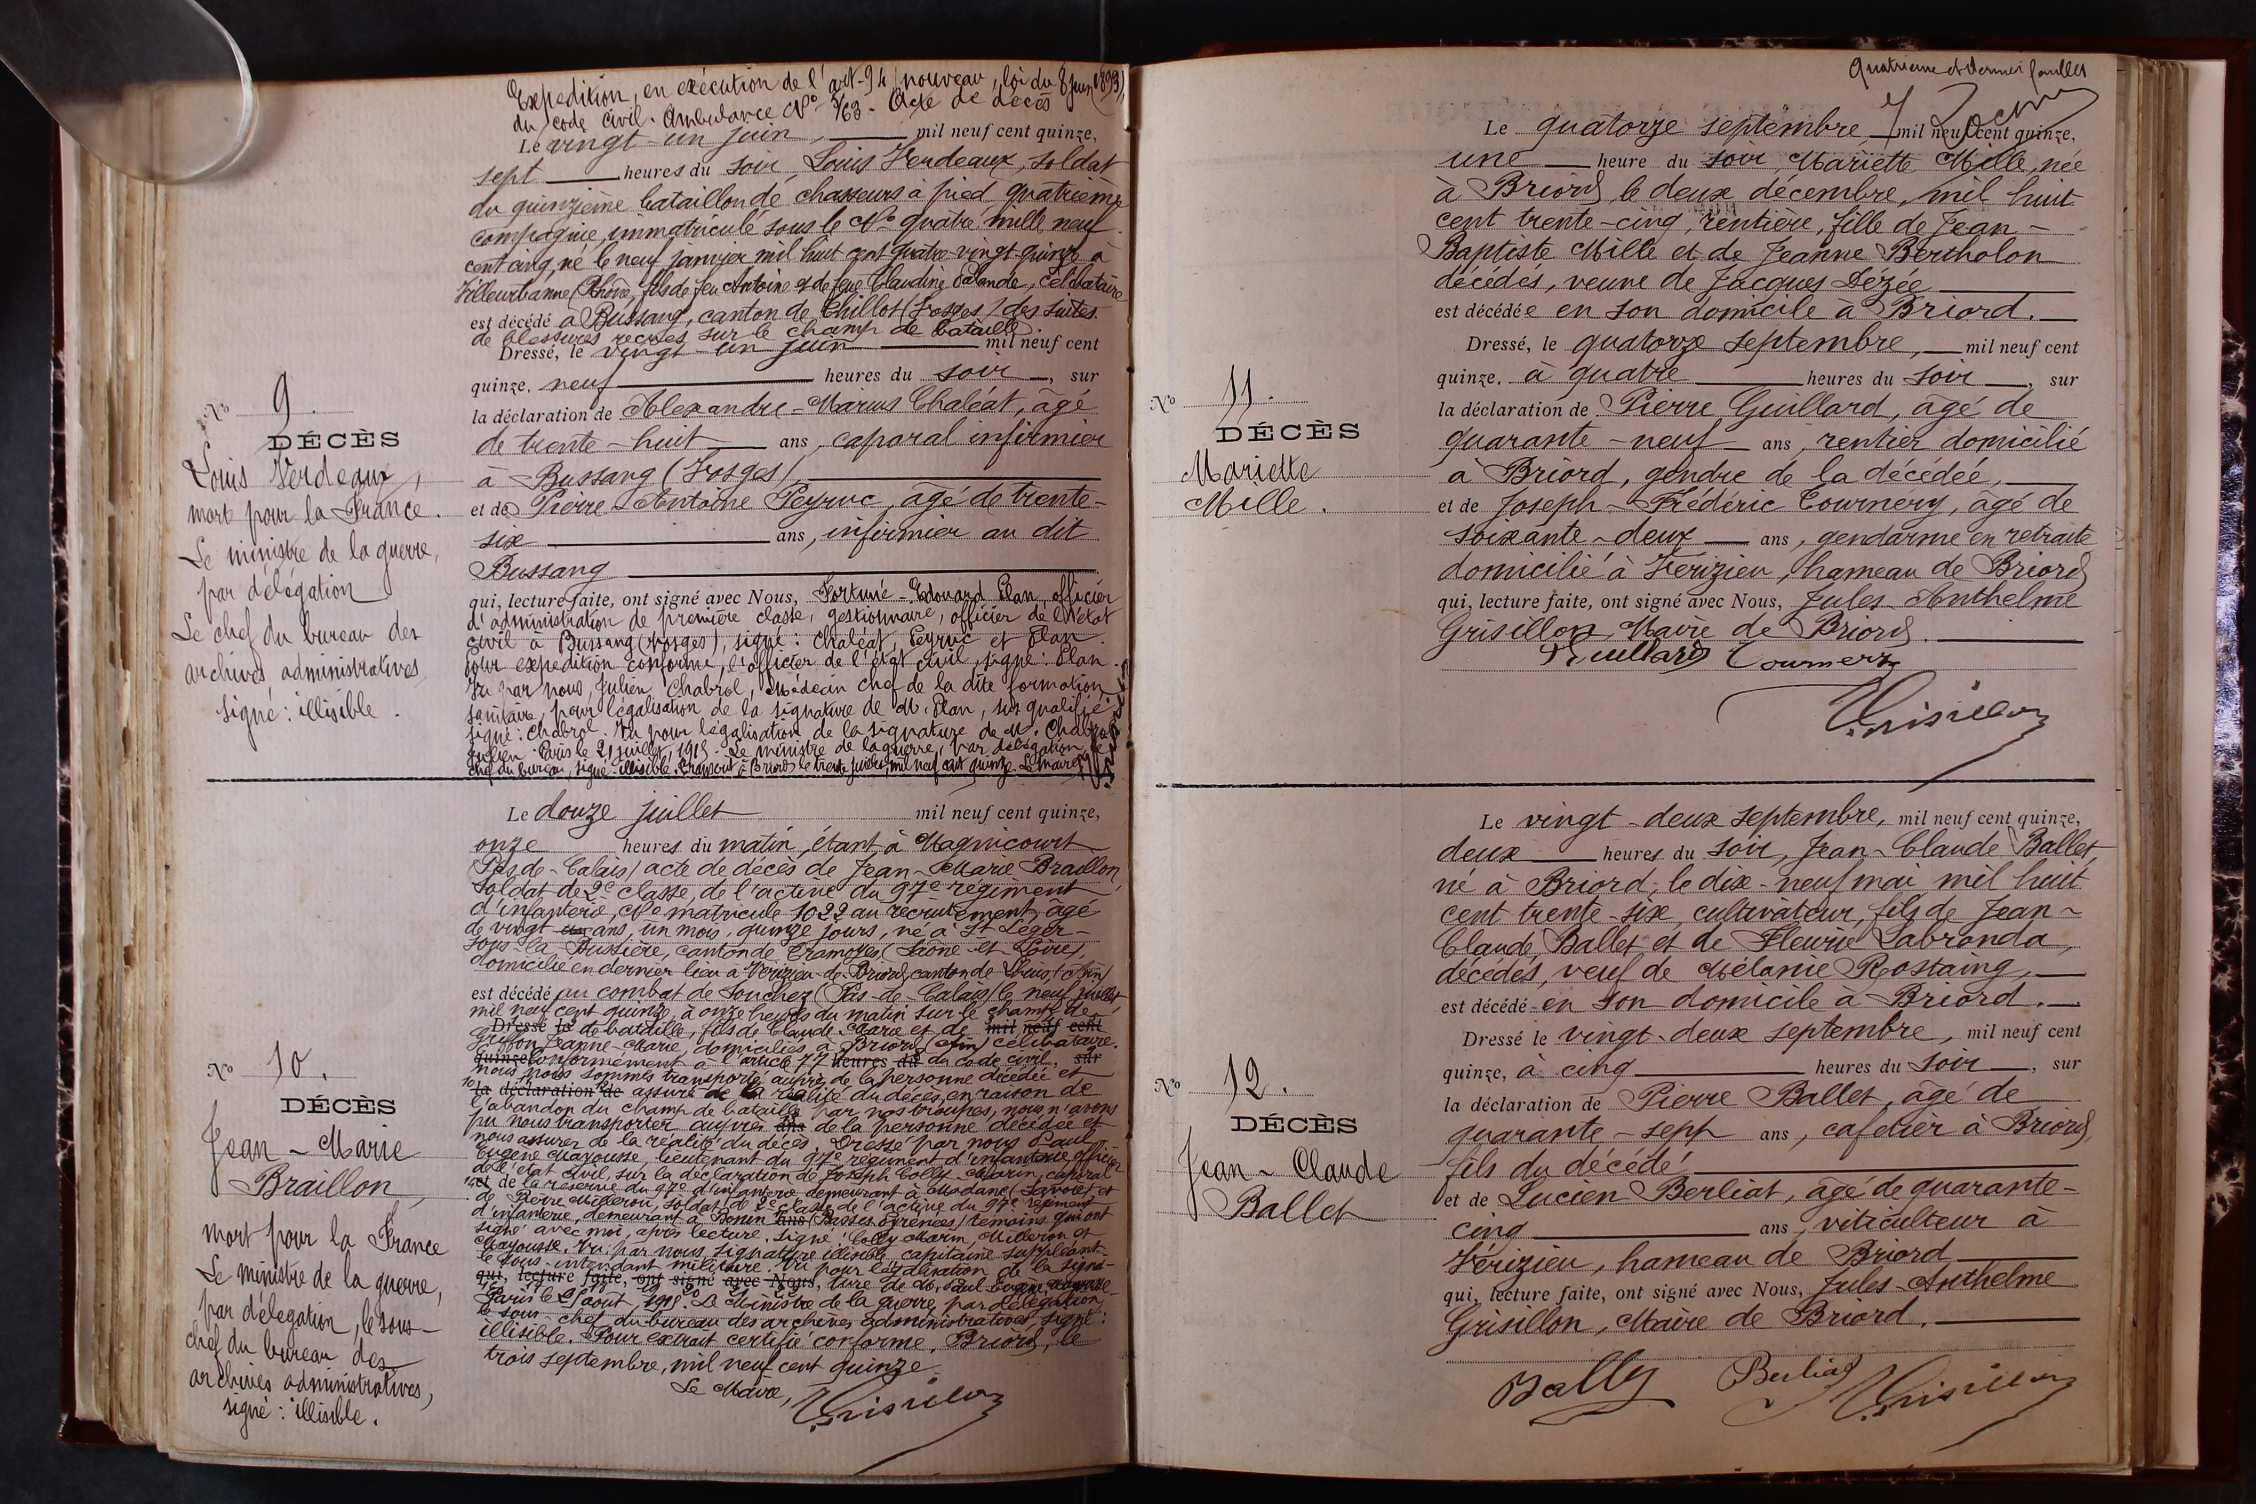 Expedition, en exécution de l'art-94 (nouveau, loi du 8 juin 1893),
du code civil. Ambulance No 3/63 - Acte de décès
Le vingt-un juin, mil neuf cent quinze,
sept heures du soir, Louis Verdeaux, soldat
du quinzième bataillon de chasseurs à pied quatrième
compagnie, immatriculé sous le No quatre mille neuf
cent cinq, né le neuf janvier mil huit cent quatre-vingt-quinze à
Villeurbanne (Rhône), fils de feu Antoine et de feue Claudine Palandé, célibataire
est décédé à Bussang, canton de Thillot (Vosges) des suites
de blessures reçues sur le champ de bataille.
Dressé, le vingt-un juin mil neuf cent
quinze, neuf heures du soir, sur
la déclaration de Alexandre-Marius Chaléat, âgé
de trente-huit ans, caporal infirmier
à Bussang (Vosges)
et de Pierre Antoine Peyruc, âgé de trente-
six ans, infirmier au dit
Bussang
qui, lecture faite, ont signé avec Nous, Fortuné-Edouard Plan, officier
d'administration de première classe, gestionnaire, officier de l'état
civil à Bussang (Vosges), signé: Chaléat, Peyruc et Plan.
Pour expédition conforme, l'officier de l'état civil, signé: Plan.
Vu par nous, Julien Chabrol, Médecin chef de la dite formation
sanitaire, pour légalisation de la signature de M. Plan, sus qualifié
signé: Chabrol. Vu pour légalisation de la signature de M. Chabrol
Julien. Paris le 21 juillet 1915. Le ministre de la guerre, par délégation, le
chef du bureau, signé: illisible. Transcrit à Briord le trente juillet mil neuf cent quinze. Le maire
No 9.
DÉCÈS
Louis Verdeaux,
mort pour la France.
Le ministre de la guerre,
par délégation
Le chef du bureau des
archives administratives
signé: illisible.
Le douze juillet mil neuf cent quinze,
onze heures du matin, étant à Magnicourt
(Pas-de-Calais) acte de décès de Jean-Marie Braillon,
soldat de 2e classe de l'active du 97e régiment
d'infanterie, No matricule 1022 au recrutement, âgé
de vingt ans, un mois, quinze jours, né à St Léger-
sous-la Bussière, canton de Tramayes (Saône-et-Loire),
domicilié en dernier lieu à Vérizieu-de-Briord canton de Lhuis (Ain)
est décédé au combat de Souchez (Pas-de-Calais) le neuf juillet
mil neuf cent quinze, à onze heures du matin sur le champ de
Dressé le de bataille, fils de Claude Marie et de mil neuf cent
Griffon Jeanne-Marie, domiciliés à Briord (Ain) célibataire.
quinze Conformément à l'article 77 heures du du code civil, sur
nous nous sommes transporté auprès de la personne décédée et
la déclaration de assuré de la réalité du décès, en raison de
l'abandon du champ de bataille par nos troupes, nous n'avons
pu nous transporter auprès ans de la personne décédée et
nous assurer de la réalité du décès. Dressé par nous Paul
Eugène Mayousse, lieutenant du 97e régiment d'infanterie officier
de l'état civil, sur la déclaration de Joseph Colly Marin, caporal
et de la réserve du 97e d'infanterie demeurant à Modane (Savoie) et
de Pierre Milleron, soldat de 2e classe de l'active du 97e régiment
d'infanterie, demeurant à Bonin ans (Basses Pyrénées) témoins qui ont
signé avec moi, après lecture. Signé: Colly Marin, Milleron et
Mayousse. Vu par nous, signature illisible, capitaine suppléant
le sous-intendant militaire. Vu pour légalisation de la signa-
qui, lecture faite, ont signé avec Nous, ture de M. Paul Eugène Mayousse
Paris le août, 1915. Le Ministre de la guerre, par délégation,
le sous-chef du bureau des archives administratives, signé:
illisible. Pour extrait certifié conforme, Briord, le
trois septembre, mil neuf cent quinze.
Le Maire, Grisillon
No 10.
DÉCÈS
Jean-Marie
Braillon,
mort pour la France
Le ministre de la guerre,
par délégation, le sous-
chef du bureau des
archives administratives,
signé: illisible.
Quatrième et dernier feuillet
Le quatorze septembre, mil neuf cent quinze,
une heure du soir, Mariette Mille, née
à Briord le deux décembre, mil huit
cent trente-cinq, rentière, fille de Jean-
Baptiste Mille et de Jeanne Bertholon
décédés, veuve de Jacques Dézée
est décédée en son domicile à Briord.
Dressé, le quatorze septembre, mil neuf cent
quinze, à quatre heures du soir, sur
la déclaration de Pierre Guillard, âgé de
quarante-neuf ans, rentier domicilié
à Briord, gendre de la décédée,
et de Joseph-Frédéric Tournery, âgé de
soixante-deux ans, gendarme en retraite
domicilié à Vérizieu, hameau de Briord
qui, lecture faite, ont signé avec Nous, Jules Anthelme
Grisillon, Maire de Briord.
Guillard Tournery
Grisillon
No 11.
DÉCÈS
Mariette
Mille.
Le vingt-deux septembre, mil neuf cent quinze,
deux heures du soir, Jean-Claude Ballet,
né à Briord, le dix-neuf mai mil huit
cent trente-six, cultivateur, fils de Jean-
Claude Ballet et de Fleurie Labranda,
décédés, veuf de Mélanie Rostaing,
est décédé en son domicile à Briord.
Dressé le vingt-deux septembre, mil neuf cent
quinze, à cinq heures du soir, sur
la déclaration de Pierre Ballet, âgé de
quarante-sept ans, cafetier à Briord,
fils du décédé
et de Lucien Berliat, âgé de quarante-
cinq ans, viticulteur à
Vérizieu, hameau de Briord
qui, lecture faite, ont signé avec Nous, Jules-Anthelme
Grisillon, Maire de Briord.
Ballet Berliat Grisillon
No 12.
DÉCÈS
Jean-Claude
Ballet